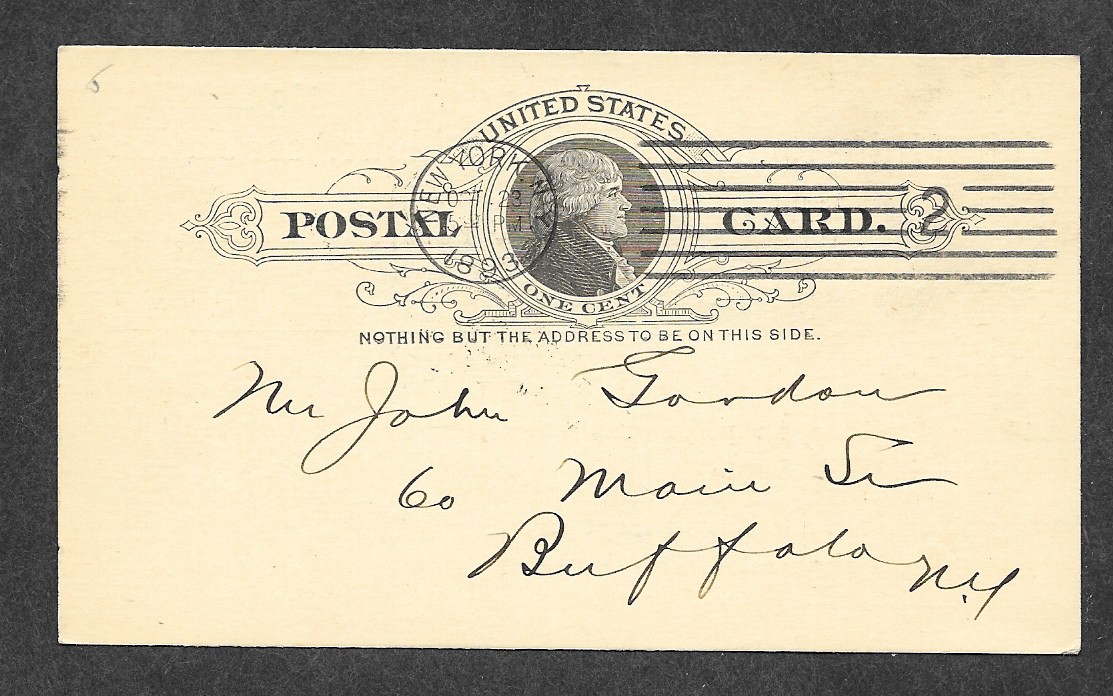 6
UNITED STATES
POSTAL CARD.
NEW YORK N.Y.
OCT 23
PM
1893
2
ONE CENT
NOTHING BUT THE ADDRESS TO BE ON THIS SIDE.
Mr John Gordon
60 Main St
Buffalo N.Y